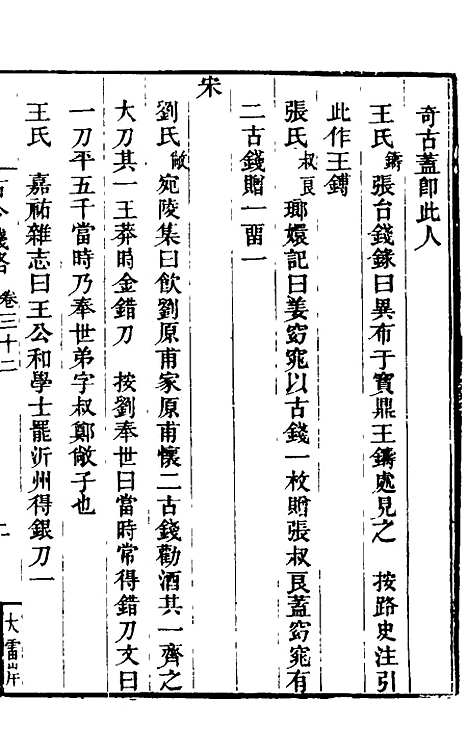 奇古蓋卽此人
王氏鑄張台錢錄曰異布于寶鼎王鑄處見之　按路史注引
此作王鎛
張氏叔良瑯嬛記曰姜窈窕以古錢一枚贈張叔良蓋窈窕有
二古錢贈一畱一
宋
劉氏敞宛陵集曰飲劉原甫家原甫懷二古錢勸酒其一齊之
大刀其一王莽時金錯刀　按劉奉世曰當時常得錯刀文曰
一刀平五千當時乃奉世弟字叔鄭敞子也
王氏　嘉祐雜志曰王公和學士罷沂州得銀刀一
卷三十二
大雷岸